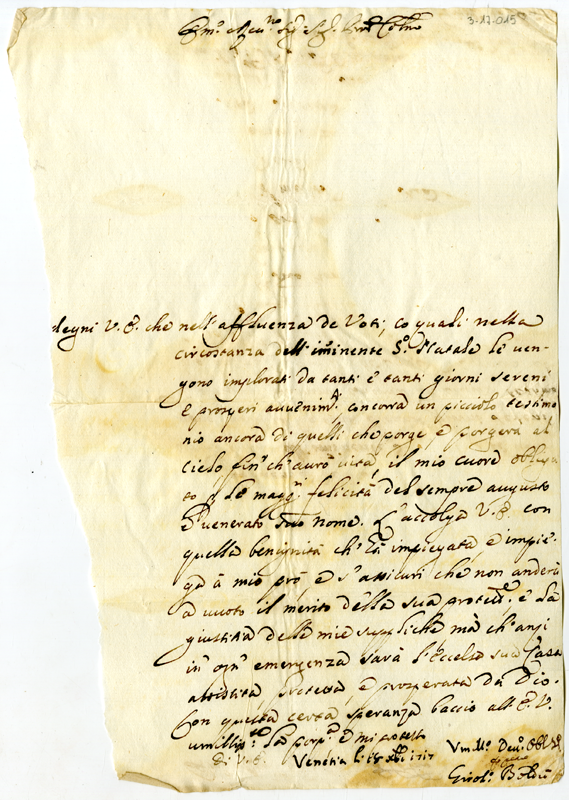 3.17.015
Em.o e Rev.mo Sig.r Sig.r
degni V.E. che nell'affluenza de Voti, co quali nella
circostanza dell'iminente S.o Natale le ven-
gono implorati da tanti e tanti giorni sereni
e prosperi avvenim.ti ancorra un picciolo testimo
nio ancora di quelli che porge e porgerà al
cielo fin' ch'aurò vità, il mio cuore obliga
to p le magg.ri felicità del sempre augusto
e venerato suo nome. L'accolga V.E. con
quella benignità ch'hà impiegata e impie-
ga à mio prò, e s'assicuri che non anderà
a vuoto il merito della sua protett.e e la
giustitia delle mie suppliche mà ch'anzi
in ogn' emergenza sarà l'Eccelsa sua Casa
assistita, protetta, e prosperata da Dio.
Con questa certa speranza baccio all' E.V.
umiliss.te la porp.a e mi protesto
di V.E. Venetia li Xbre 1717
Um.mo Dev.o Obl.
Girol.